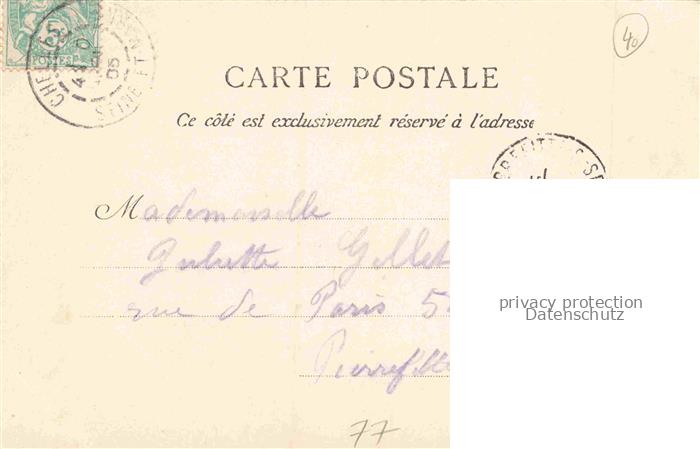 40
CARTE POSTALE
Ce côté est exclusivement réservé à l'adresse
Mademoiselle
Juliette Gillet
rue de Paris 5
Pierrefitte
77
privacy protection
Datenschutz